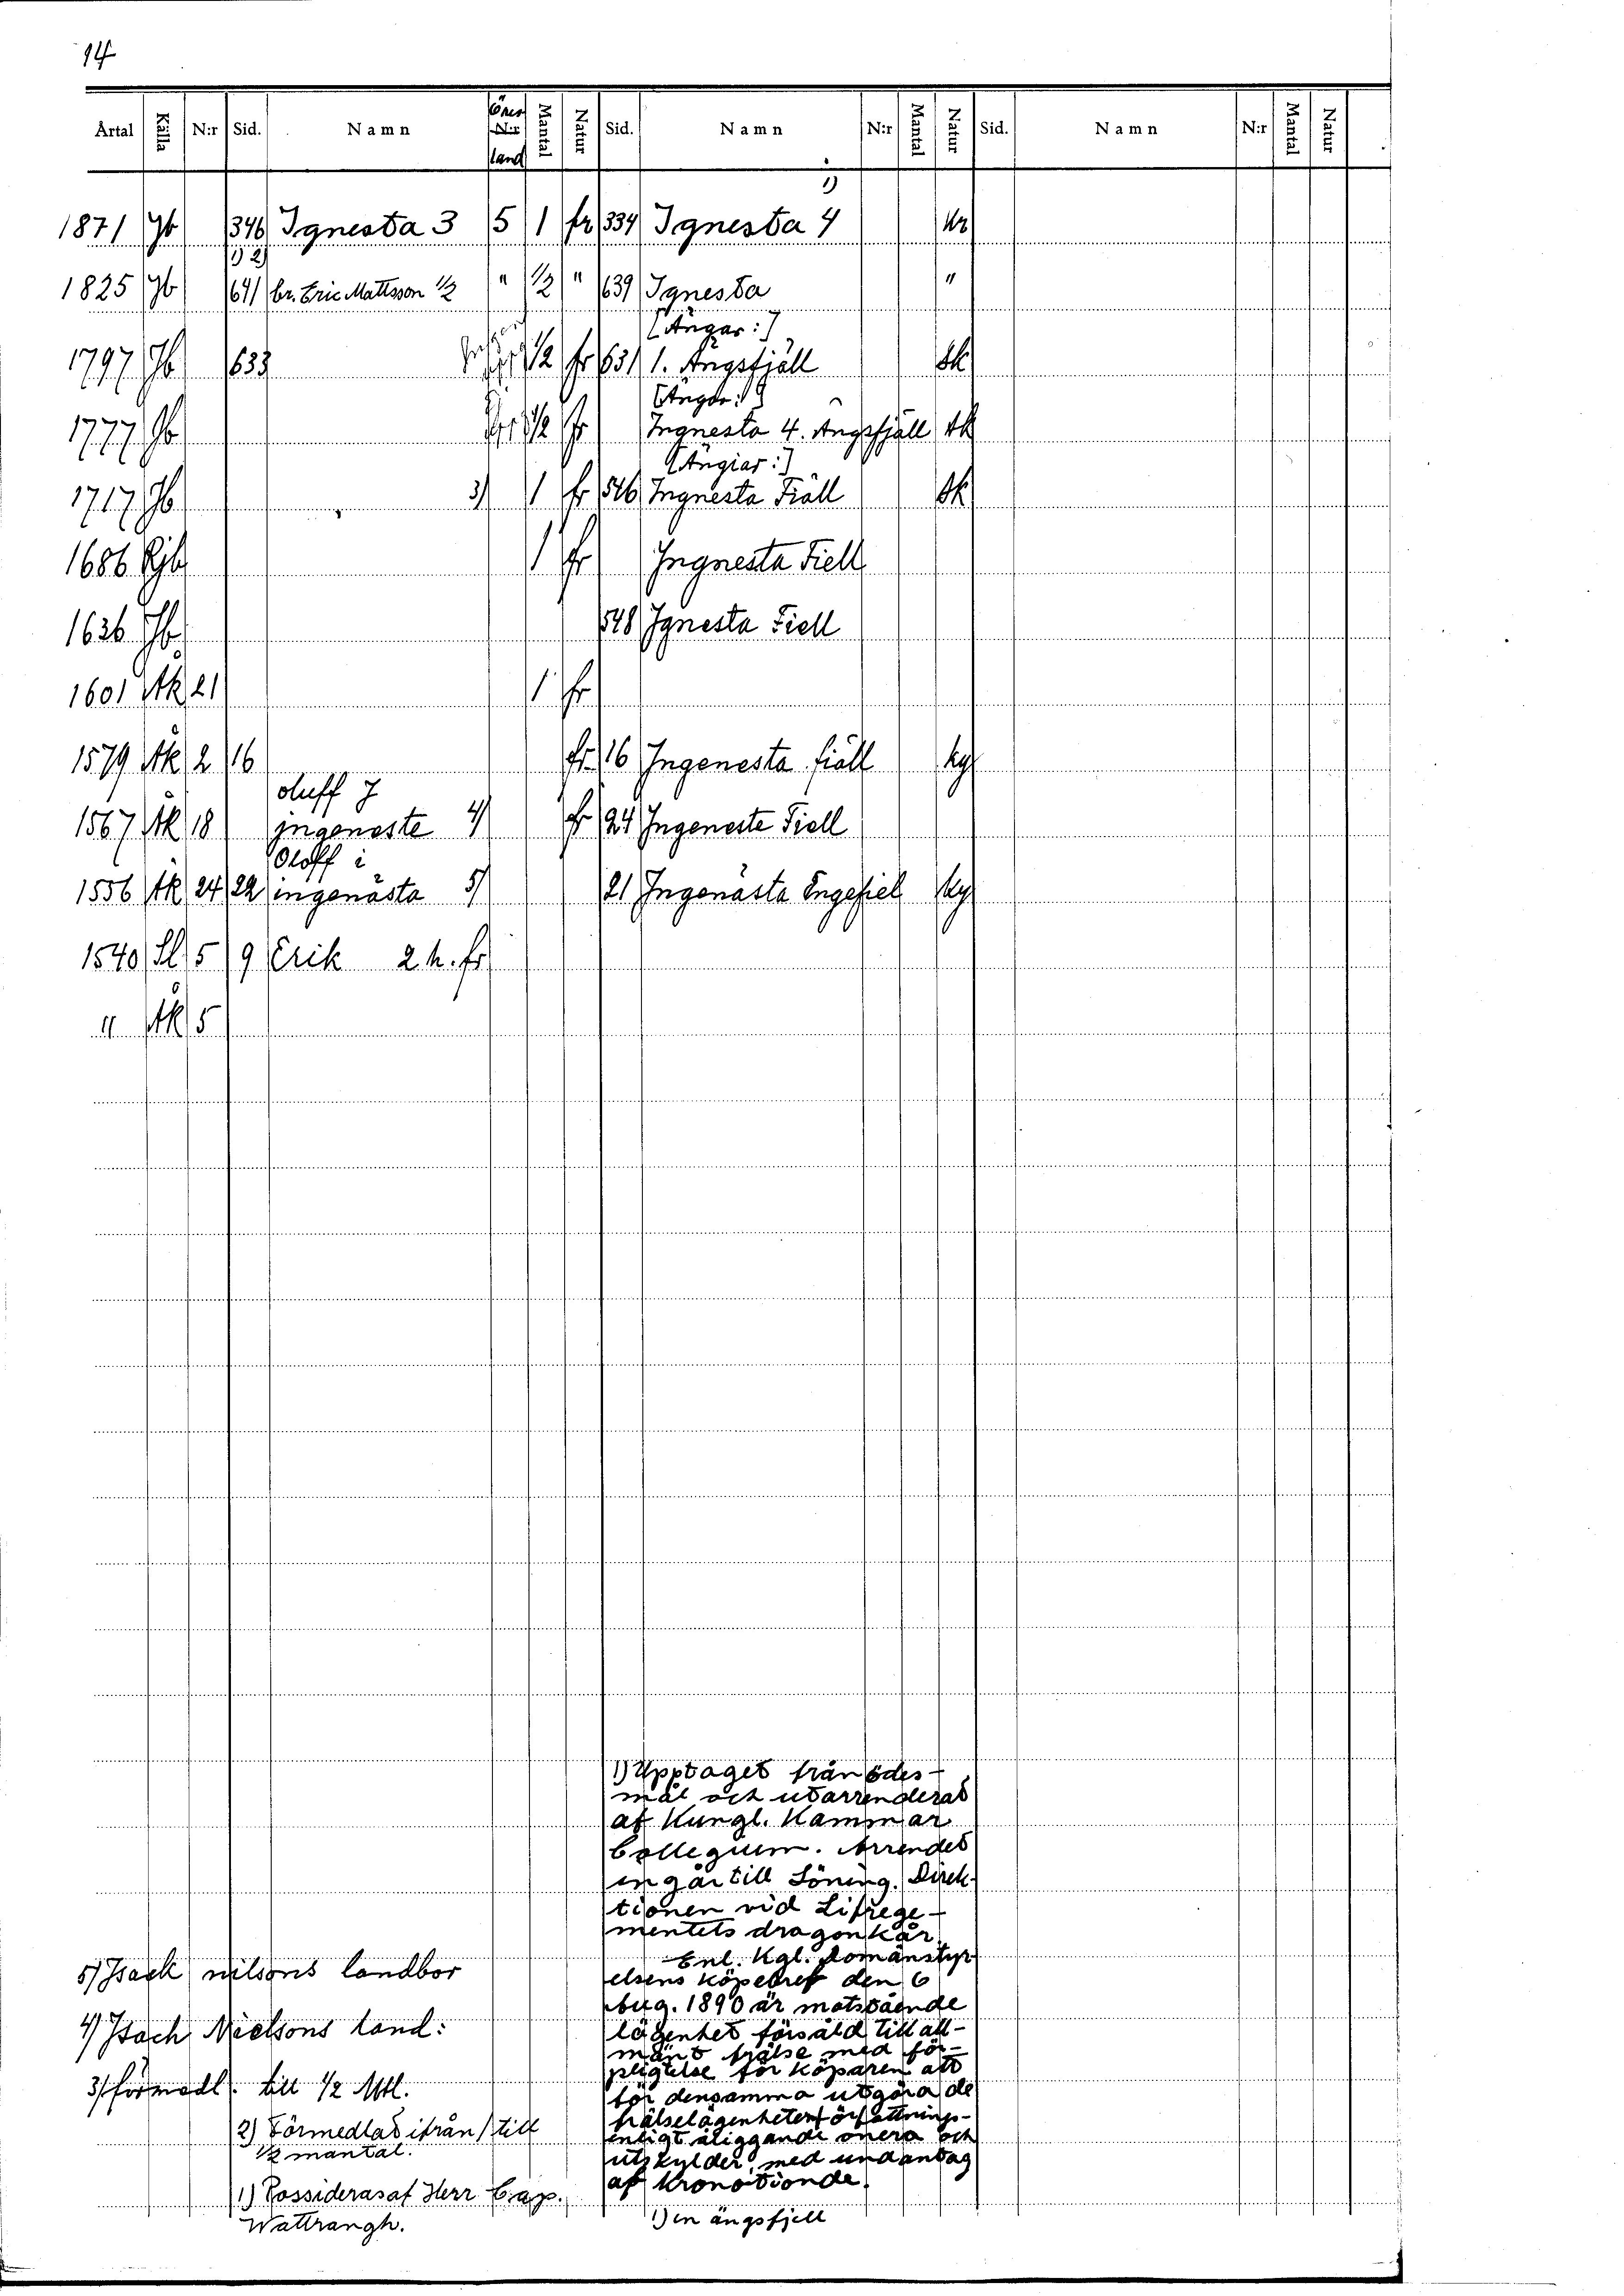 14
Årtal Källa N:r Sid. Namn N:r Mantal Natur Sid. Namn N:r Mantal Natur Sid. Namn N:r Mantal Natur
land
1)
1871 Jb 346 Ignesta 3 5 1 fr 334 Ignesta 4 Kr
1) 2)
1825 Jb 641 br. Eric Mattsson 1/2 " 1/2 " 639 Ignesta "
[Ängar:]
1797 Jb 633 1/2 fr 631 1. Ängsfjäll
[Ängar:]
1777 Jb 1/2 fr Ingnesta 4. Ängsfjäll
[Ängiar:]
1717 Jb 3) 1 fr 516 Ingnesta Fiäll
1686 1 fr Ingnesta Fiell
1626 Jb 548 Ignesta Fiell
1601 Åk 21 1 fr
1579 Åk 2 16 fr 16 Ingenesta fiäll Ky
oluff J
1567 Åk 18 jngeneste 4) fr 24 Ingeneste Fiell
Oloff i
1556 Åk 24 22 ingenästa 5) 21 Ingenästa Engefiel Ky
1540 Sl 5 9 Erik 2 h. fr
" Åk 5
1) Upptaget från ödes-
mål och utarrenderat
af Kungl. Kammar
Collegium. Arrendet
ingår till Löning. Direk-
tionen vid Lifrege-
mentets dragonkår.
Enl. Kgl. Domänstyr
elsens köpebref den 6
Aug. 1890 är motstående
lägenhet försåld till all-
mänt frälse med för-
pligtelse för köparen att
för densamma utgöra de
frälselägenheten författnings-
enligt åliggande onera och
utskylder med undantag
af Kronotionde.
1) en ängsfjell
5) Jsack nilsons landbor
4) Jsach Nielsons land:
3) förmedl. till 1/2 Mtl.
2) Förmedlad ifrån 1 till
1/2 mantal.
1) Possideras af Herr Cap.
Wattrangh.